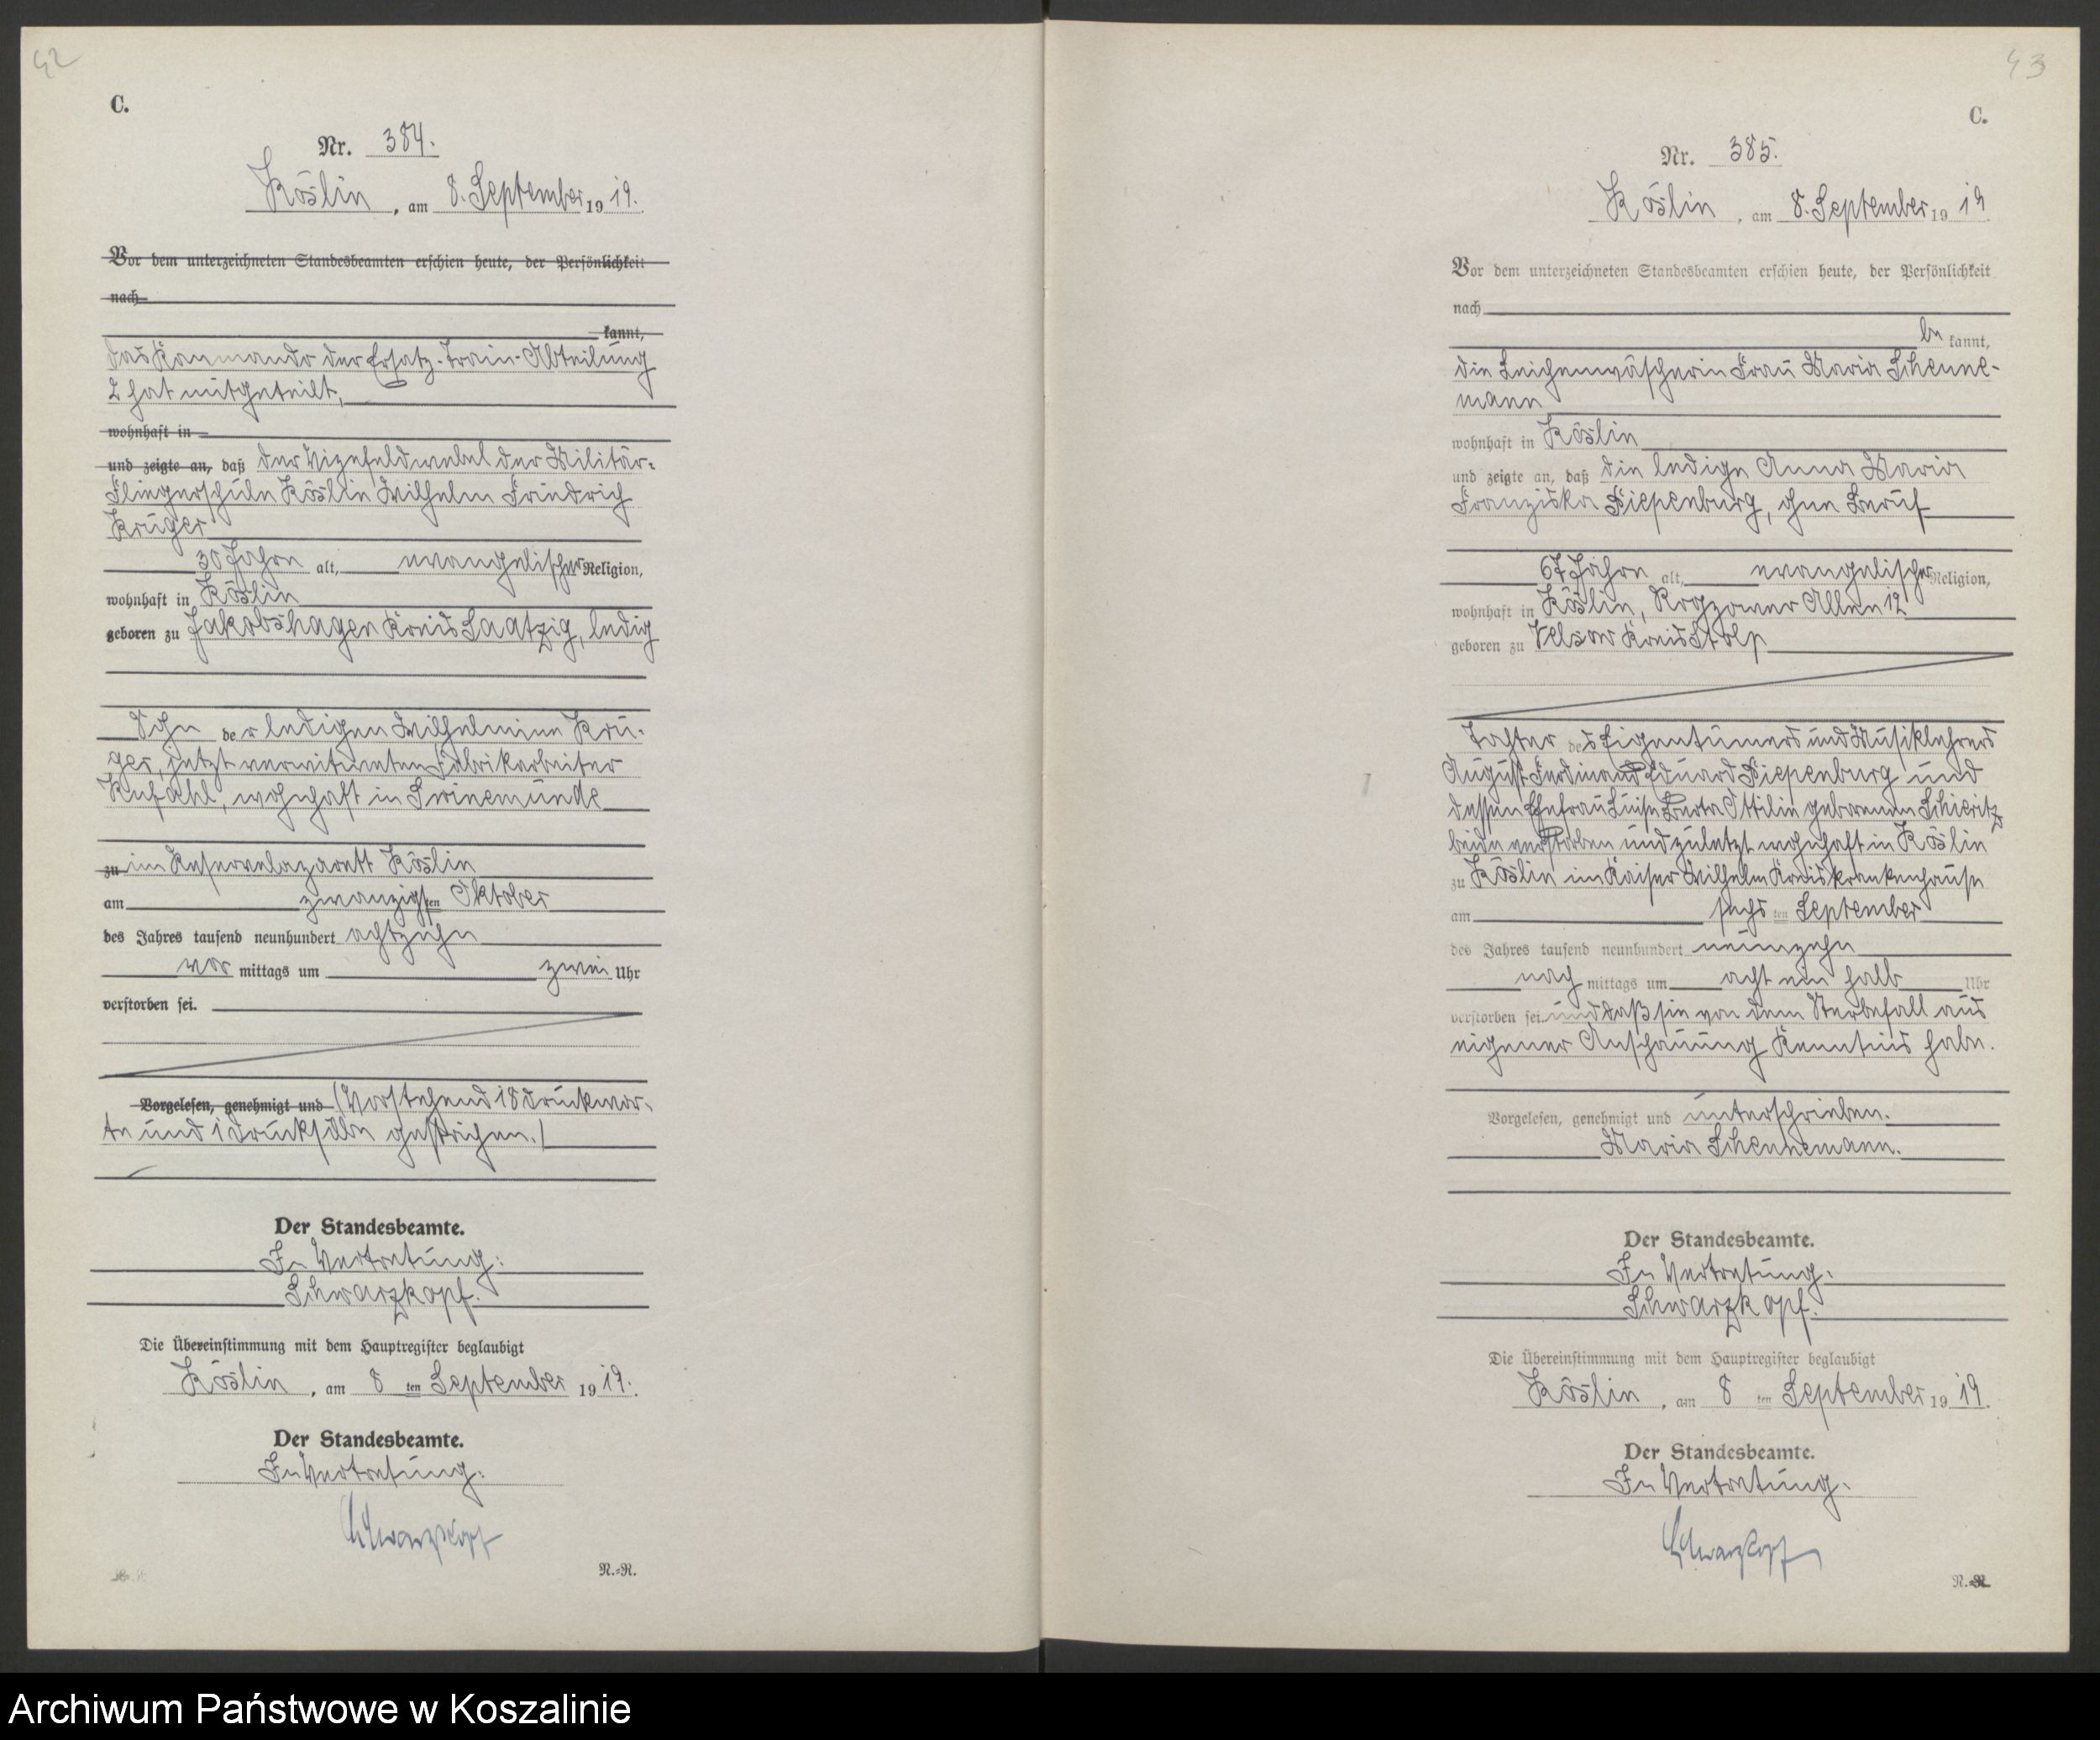 42
C.
Nr. 384.
Köslin, am 8. September 1919.
Vor dem unterzeichneten Standesbeamten erschien heute, der Persönlichkeit
nach
kannt,
das Kommando der Ersatz-Train-Abteilung
2 hat mitgeteilt,
wohnhaft in
und zeigte an, daß der Vizefeldwebel der Militär-
Fliegerschule Köslin Wilhelm Friedrich
Krüger
30 Jahre alt, evangelischer Religion,
wohnhaft in Köslin
geboren zu Jakobshagen Kreis Saatzig, ledig
Sohn der ledigen Wilhelmine Krü-
ger, jetzt verwitweten Fabrikarbeiter
Kufahl, wohnhaft in Swinemünde
zu im Reservelazarett Köslin
am zwanzigsten Oktober
des Jahres tausend neunhundert achtzehn
vor mittags um zwei Uhr
verstorben sei.
Vorgelesen, genehmigt und (Vorstehend 18 Druckwor-
te und 1 Drucksilbe gestrichen.)
Der Standesbeamte.
In Vertretung:
Schwarzkopf.
Die Übereinstimmung mit dem Hauptregister beglaubigt
Köslin, am 8 ten September 1919.
Der Standesbeamte.
In Vertretung:
Schwarzkopf
N.=N.
43
C.
Nr. 385.
Köslin, am 8. September 1919
Vor dem unterzeichneten Standesbeamten erschien heute, der Persönlichkeit
nach
be kannt,
die Leichenwäscherin Frau Maria Schenne-
mann
wohnhaft in Köslin
und zeigte an, daß die ledige Anna Maria
Franziska Piepenburg, ohne Beruf
67 Jahre alt, evangelischer Religion,
wohnhaft in Köslin, Rogzower Allee 12
geboren zu Velsow Kreis Stolp
Tochter des Eigentümers und Musiklehrers
August Ferdinand Eduard Piepenburg und
dessen Ehefrau Luise Berta Ottilie geborenen Schieritz
beide verstorben und zuletzt wohnhaft in Köslin
zu Köslin im Kaiser Wilhelm Kreiskrankenhause
am sechs ten September
des Jahres tausend neunhundert neunzehn
nach mittags um acht ein halb Uhr
verstorben sei und daß sie von dem Sterbefall aus
eigener Anschauung Kenntnis habe.
Vorgelesen, genehmigt und unterschrieben.
Maria Schennemann.
Der Standesbeamte.
In Vertretung.
Schwarzkopf.
Die Übereinstimmung mit dem Hauptregister beglaubigt
Köslin, am 8 ten September 1919.
Der Standesbeamte.
In Vertretung.
Schwarzkopf
N.=N.
Archiwum Państwowe w Koszalinie